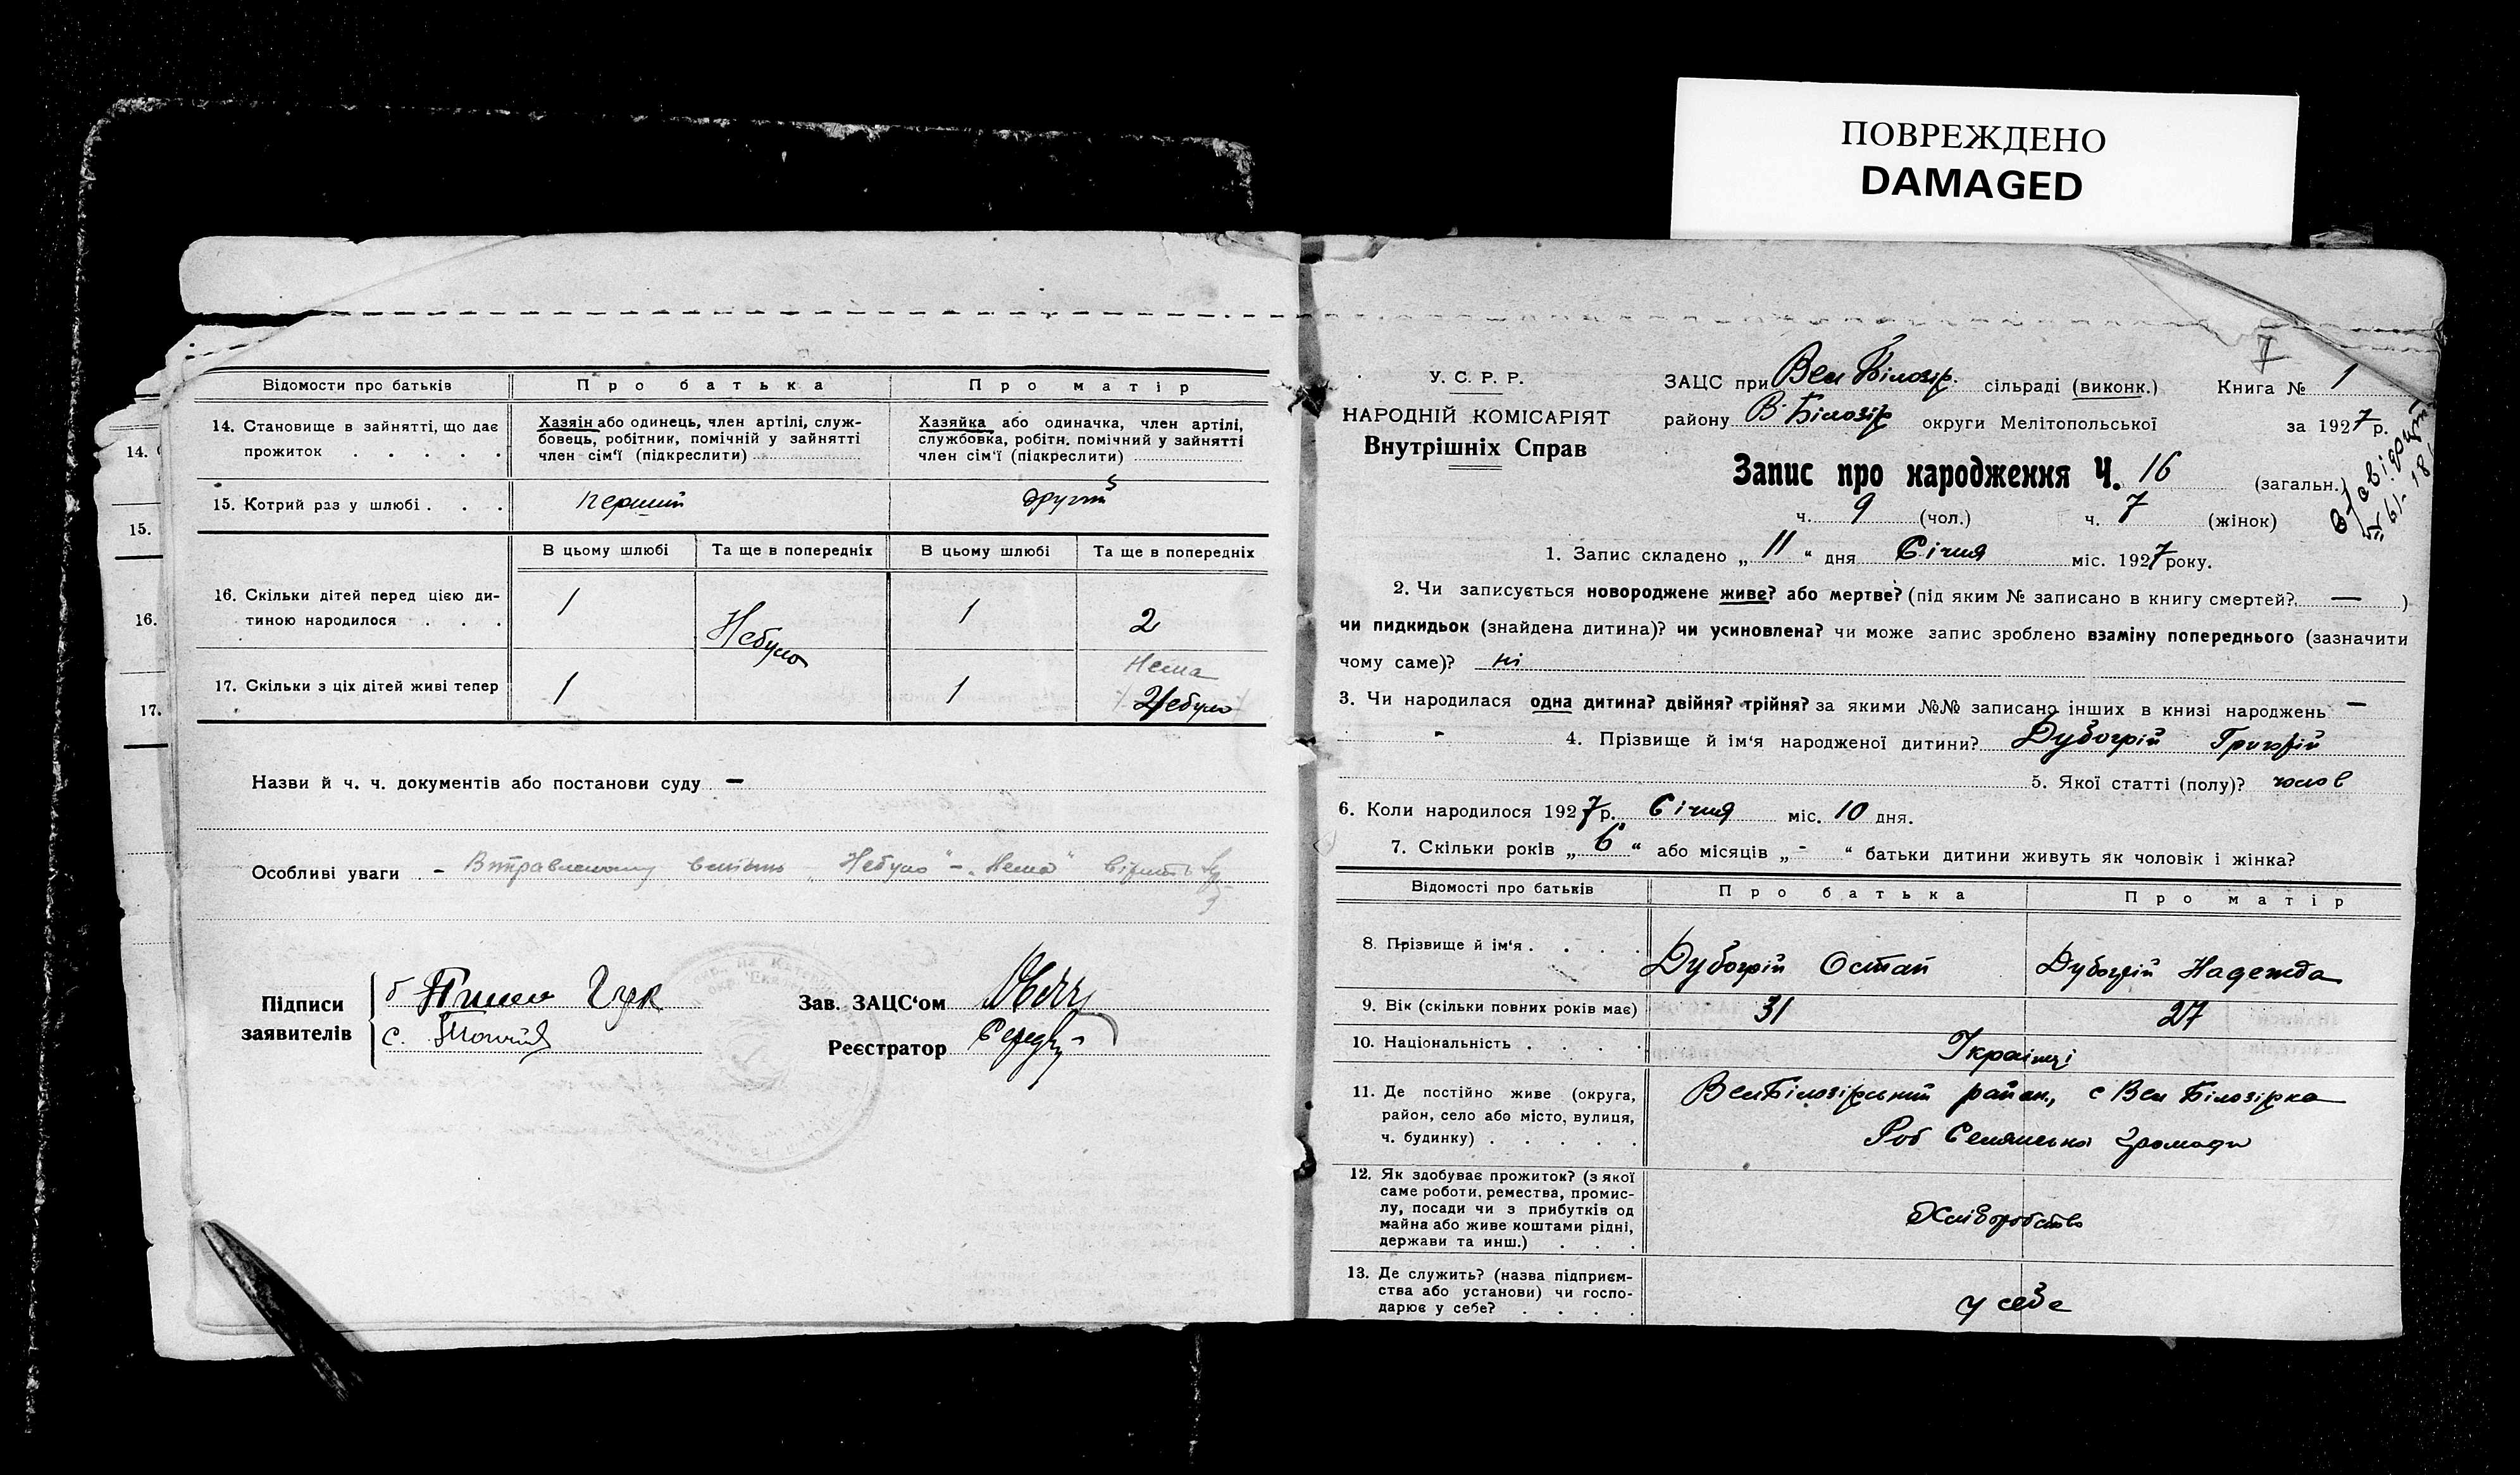 ПОВРЕЖДЕНО
DAMAGED
Відомости про батьків
Про батька
Про матір
14. Становище в зайнятті, що дає прожиток . . . . .
Хазяін або одинець, член артілі, служ-
бовець, робітник, помічній у зайнятті
член сім'ї (підкреслити)
Хазяйка або одиначка, член артілі,
службовка, робітн. помічний у зайнятті
член сім'ї (підкреслити)
15. Котрий раз у шлюбі . . .
перший
другий
В цьому шлюбі
Та ще в попередніх
В цьому шлюбі
Та ще в попередніх
16. Скільки дітей перед цією ди-
тиною народилося . . .
1
Небуло
1
2
17. Скільки з ціх дітей живі тепер
1
1
Нема
Небуло
14.
15.
16.
17.
Назви й ч. ч. документів або постанови суду —
Особливі уваги - "Небуло" - "Нема"
Підписи
заявителів
Гук
Зав. ЗАЦС'ом
Реєстратор
У. С. Р. Р.
НАРОДНІЙ КОМІСАРІЯТ
Внутрішніх Справ
ЗАЦС при Вел Білозір. сільраді (виконк.) Книга № 1
району В-Білозір округи Мелітопольської за 1927 р.
Запис про народження Ч. 16 (загальн.)
ч. 9 (чол.) ч. 7 (жінок)
1. Запис складено „11“ дня Січня міс. 1927 року.
2. Чи записується новороджене живе? або мертве? (під яким № записано в книгу смертей? — )
чи пидкидьок (знайдена дитина)? чи усиновлена? чи може запис зроблено взаміну попереднього (зазначити
чому саме)? ні
3. Чи народилася одна дитина? двійня? трійня? за якими №№ записано інших в книзі народжень —
4. Прізвище й ім'я народженої дитини? Дубогрій Григорій
5. Якої статті (полу)? чолов
6. Коли народилося 1927 р. Січня міс. 10 дня.
7. Скільки років „6“ або місяців „-“ батьки дитини живуть як чоловік і жінка?
Відомості про батьків
Про батька
Про матір
8. Прізвище й ім'я . . . .
Дубогрій Остап
Дубогрій Надежда
9. Вік (скільки повних років має)
31
27
10. Національність . . . .
Українці
11. Де постійно живе (округа,
район, село або місто, вулиця,
ч. будинку) . . . . .
ВелБілозірський район, с Вел Білозірка
Роб Селянської громади
12. Як здобуває прожиток? (з якої
саме роботи, ремества, промис-
лу, посади чи з прибутків од
майна або живе коштами рідні,
держави та инш.) . . .
Хліборобство
13. Де служить? (назва підприєм-
ства або установи) чи госпо-
дарює у себе? . . . .
у себе